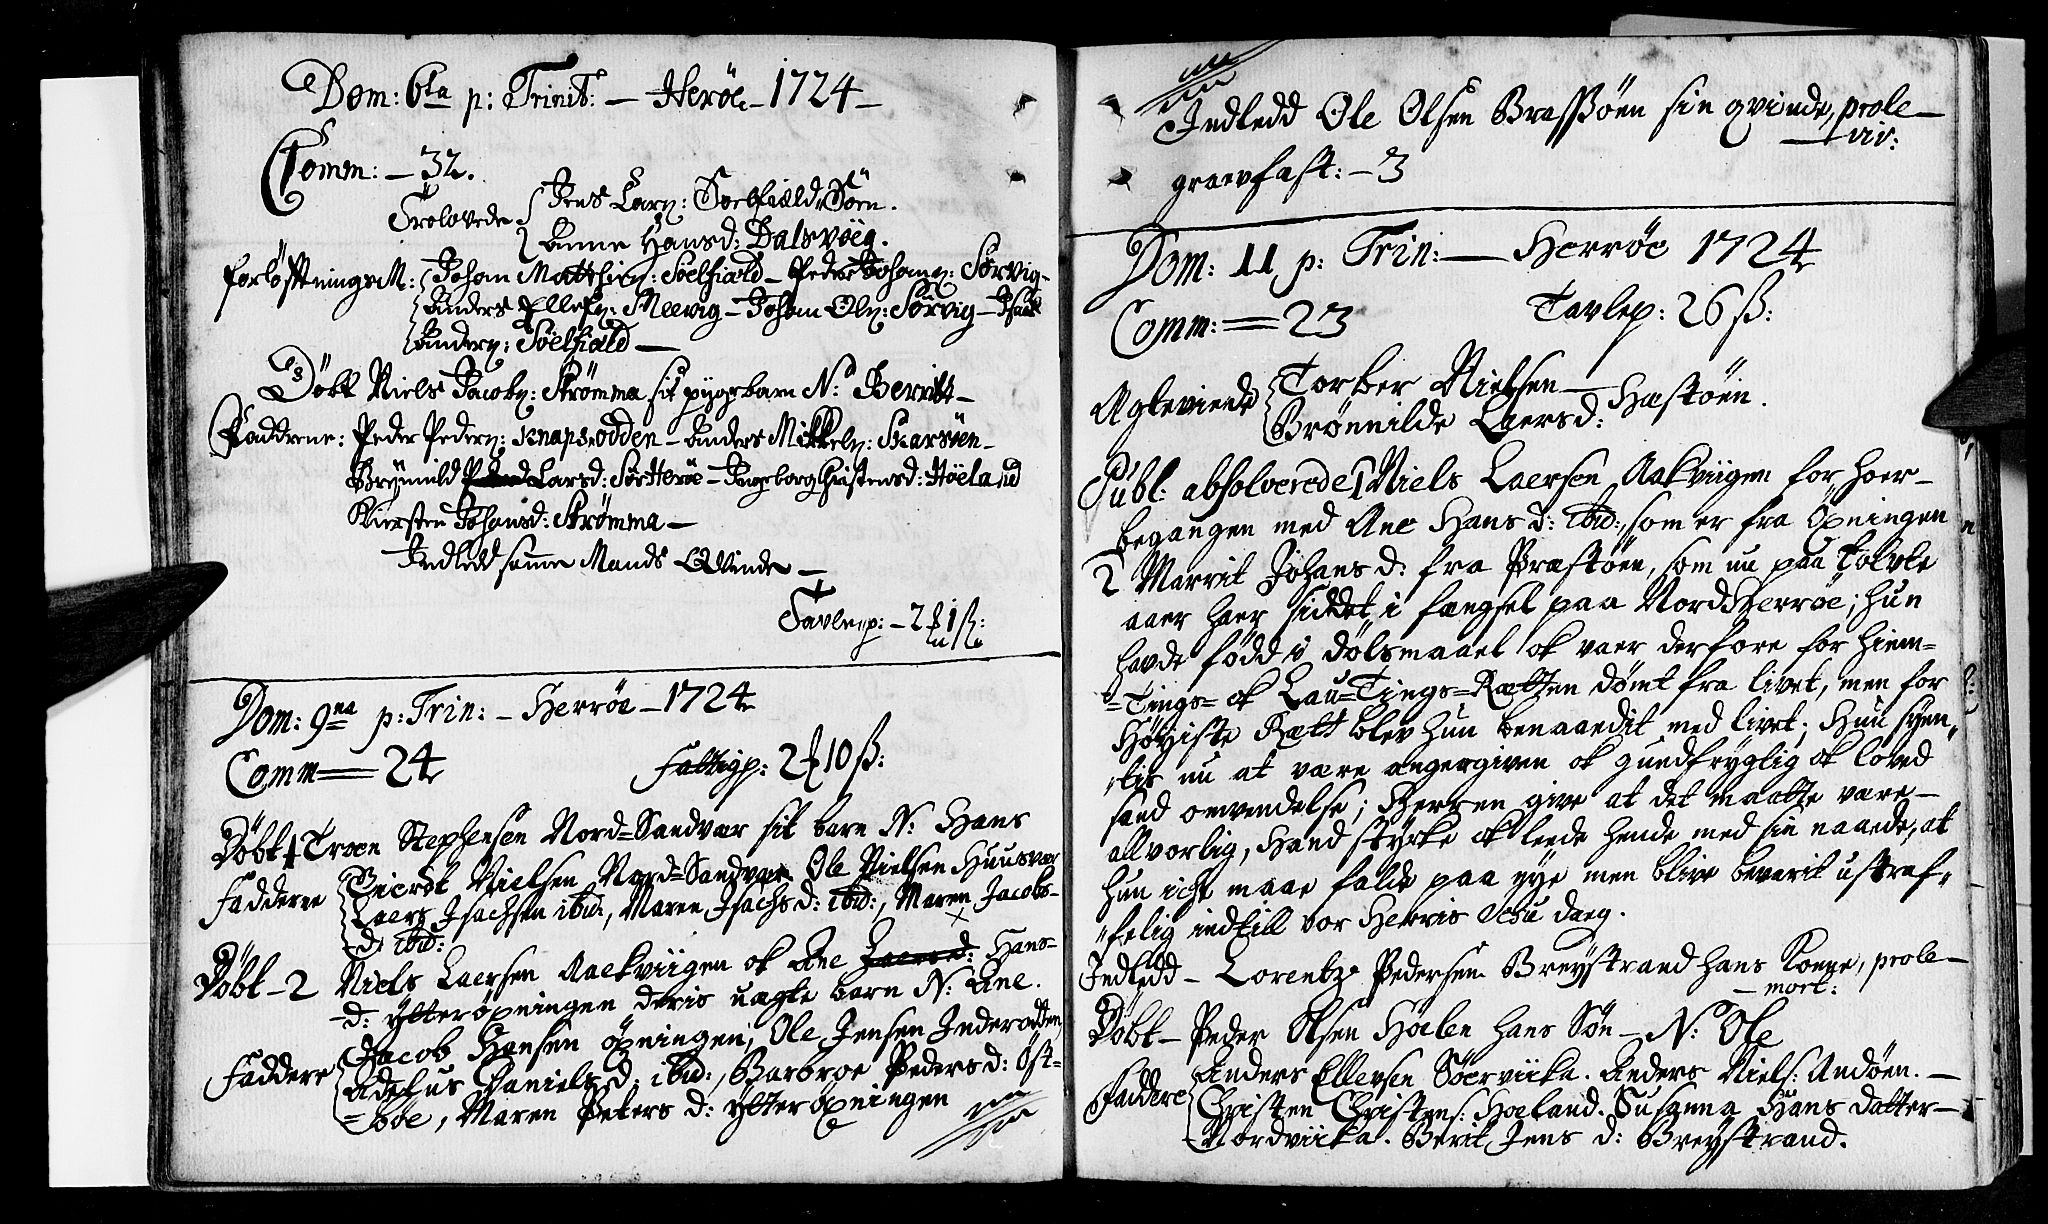 Dom: 6ta p: Trinit: – Heröe – 1724 –
Comm: – 32.
Trolovede Jens Larß: Soelfiæld, Söen.
Anne Hansd: Dalsvåeg.
forlöftningsM: Johan Matthiæß: Söelfiald – Peder Johanß: Sörvig –
Anders Ellefß: Meevig – Johan Olß: Sörvig – Isaac
Anderß: Söelfiæld –
Döbt Niels Jacobß: Strömma sit pygebarn N: Beritt –
Faddrene: Peder Pederß: Knaps-odden – Anders Mikkelß: Skarsöen –
Brynnild Larsd: Sör Heröe – Ingeborg Christensd: Höeland
Kiersten Johansd: Strømma –
Indledd samme Mands Qvinde –
Tavlep: – 2 ₰ 1 ß:
Dom: 9na p: Trin: – Herröe – 1724
Comm = 24 Fattigp: 2 ₰ 10 ß:
Döbt 1 Troen Stephensen Nord=Sandvær sit barn N: Hans
Faddere Sierdt Nielsen Nord=Sandvær Ole Nielsen Huusvær
Laers Isachsen ibid:, Maren Isachs d: ibid:, Maren Jacobs-
d: ibid:
Döbt – 2 Niels Laersen Aakviigen ok Ane Laersd: Hans-
d: ytteröpningen deris uægte barn N: Ane.
Faddere Jacob Hansen öpningen, Ole Jensen Inderodden
Adelus Daniels d: ibid:, Barbroe Peders d: Öst-
=boe, Maren Peters d: ytteröpningen
Indledd Ole Olsen Brassöen sin qvinde, prole –
viv:
graevfast: – 3
Dom: 11 p: Trin: – Herröe 1724
Comm: = 23 Tavlep: 26 ß:
Ægteviede Torber Nielsen – Hæstöen.
Brönnilde Laersd:
Publ: absolverede 1 Niels Laersen Aakviigen for hoer –
begangen med Ane Hans d: ibid:, som er fra Öpningen
2 Marrit Johans d: fra Præstöen, som nu paa tolvte
aaer haer siddet i fængsel paa Nord Herröe; hun
havde född i dölsmaael ok vaer derfore for Hiem=
=Tings= ok Lau=Tings=Rætten dömt fra livet, men for
Höyiste Rætt blev hun benaaedit med livet; Hun syen,,
,,tis nu at være angergiven ok gudfrygtig ok loved
sand omvendelse; Herren give at det maatte være –
allvorlig, Hand styrke ok leede hende med sin naaede, at
hun icke maae falde paa nye men blive bevarit ustraf,,
,,felig indtill vor Herris Jesu daeg.
Indledd – Lorentz Pedersen Breystrand hans Koene, prole –
– mort:
Döbt – Peder Olsen Hölen hans Sön – N: Ole
Faddere Anders Ellevsen Söerviika. Anders Niels: Andöen. –
Christen Christens: Hoeland. Susanna Hans datter –
Nordviika. Berit Jens d: Breystrand.